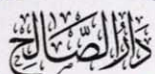 دَارُ الصَّالِحِ